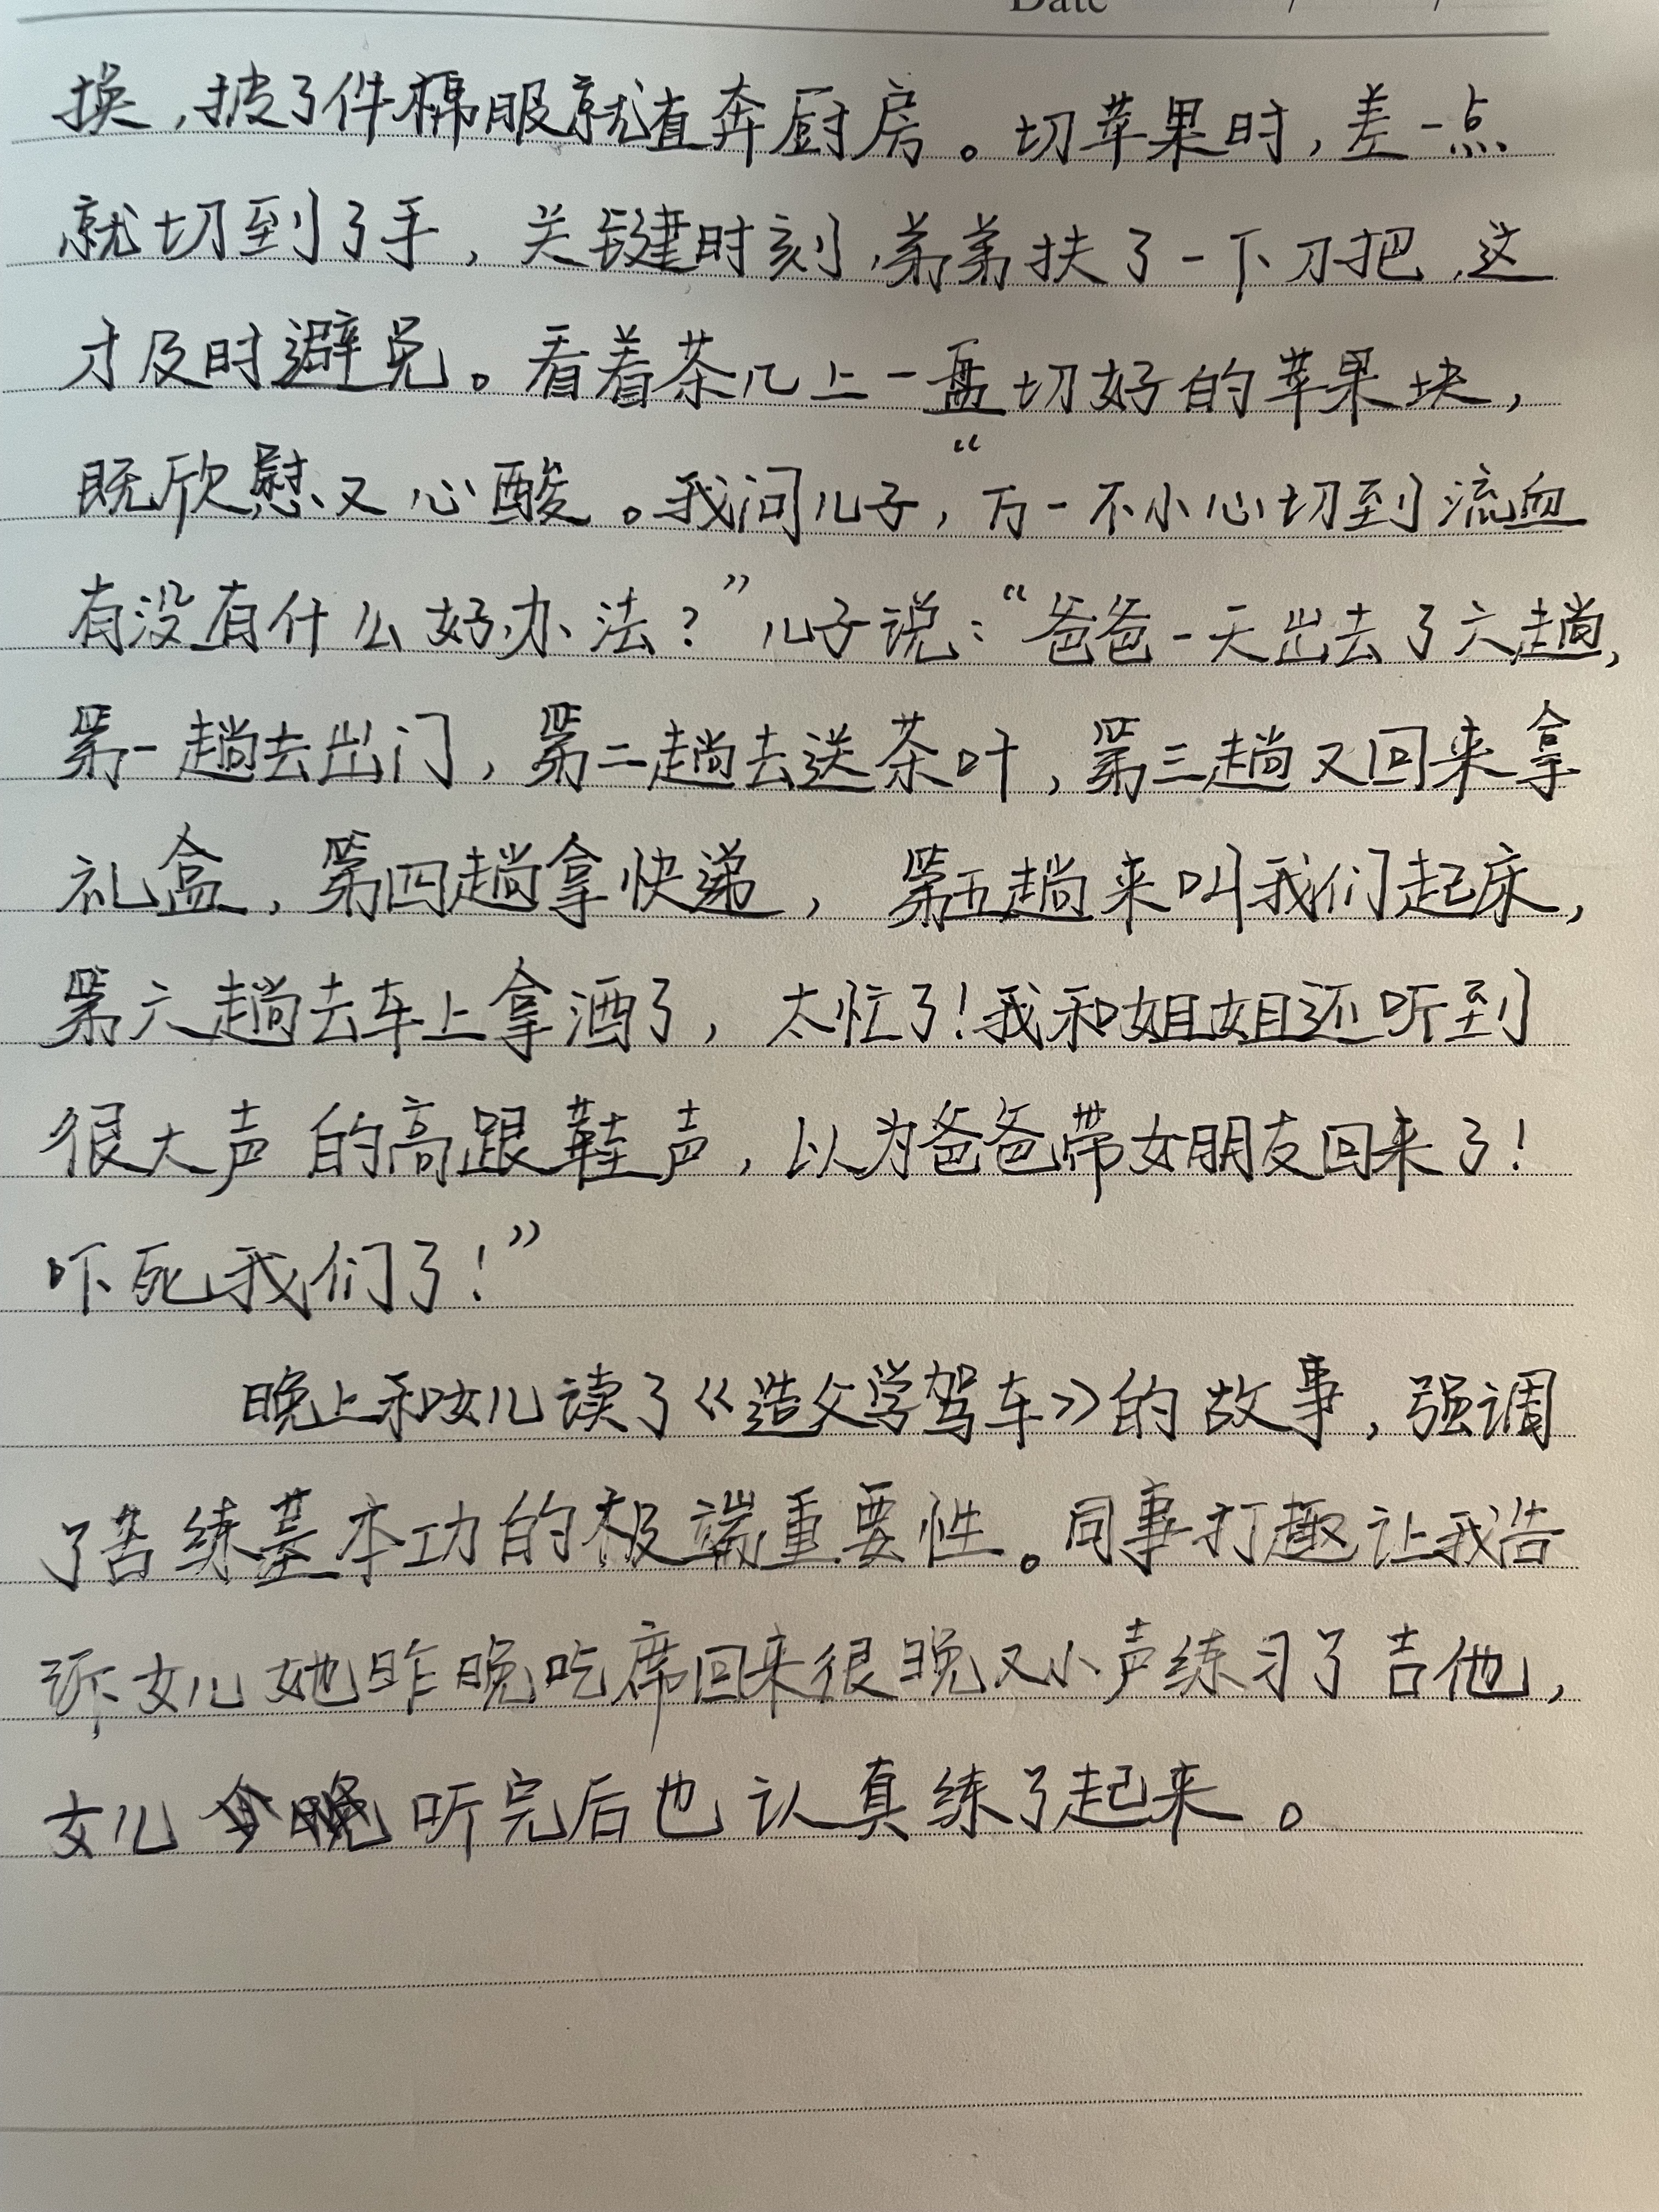 Date / /
换，披了件棉服就直奔厨房。切苹果时，差一点
就切到了手，关键时刻，弟弟扶了一下刀把，这
才及时避免。看着茶几上一盘切好的苹果块，
既欣慰又心酸。我问儿子，“万一不小心切到流血
有没有什么好办法？”儿子说：“爸爸一天出去了六趟，
第一趟去出门，第二趟去送茶叶，第三趟又回来拿
礼盒，第四趟拿快递，第五趟来叫我们起床，
第六趟去车上拿酒了，太忙了！我和姐姐还听到
很大声的高跟鞋声，以为爸爸带女朋友回来了！
吓死我们了！”
晚上和女儿读了《造父学驾车》的故事，强调
了苦练基本功的极端重要性。同事打趣让我告
诉女儿她昨晚吃席回来很晚又小声练习了吉他，
女儿听完后也认真练了起来。